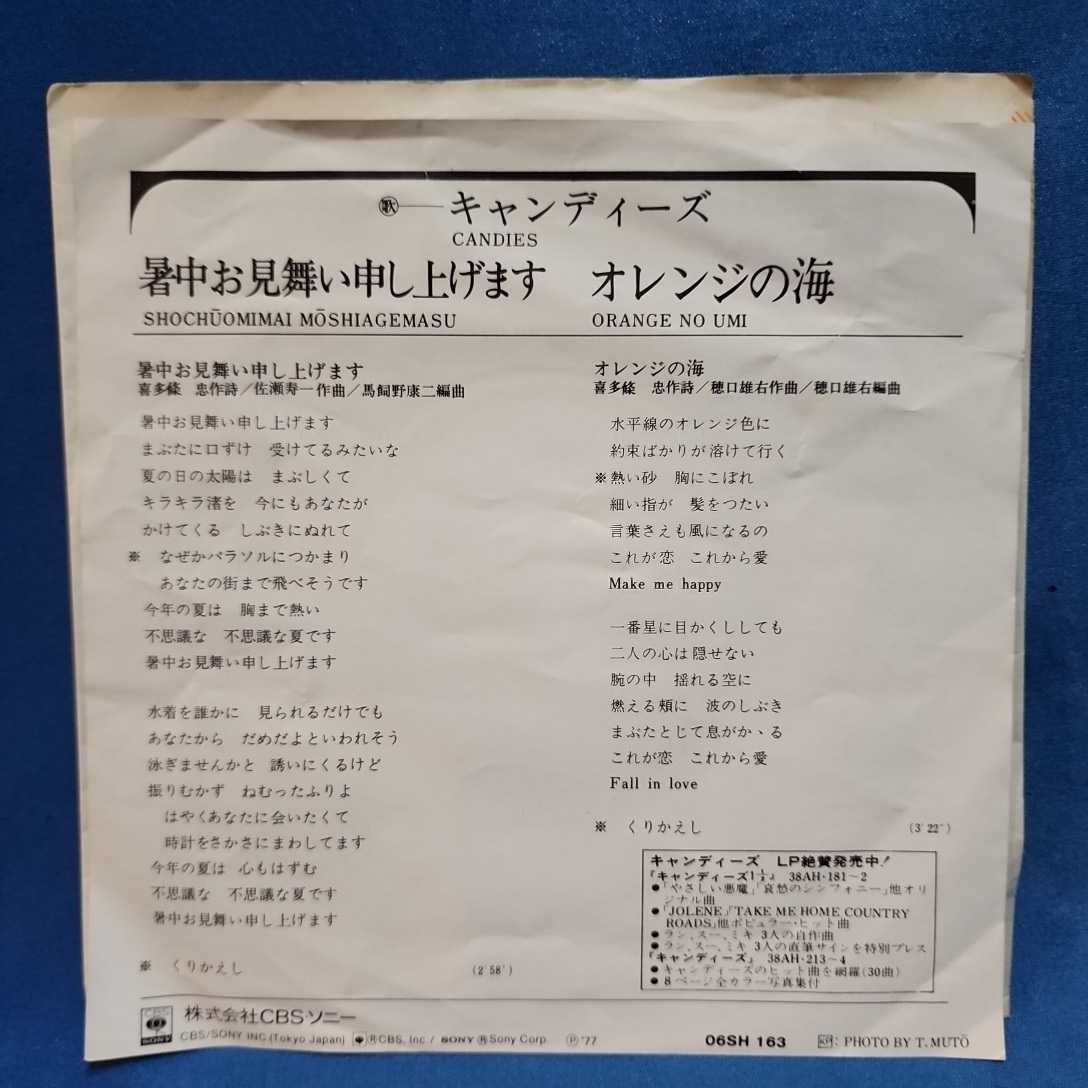 歌 キャンディーズ
CANDIES
暑中お見舞い申し上げます
SHOCHŪOMIMAI MŌSHIAGEMASU
オレンジの海
ORANGE NO UMI
暑中お見舞い申し上げます
喜多條 忠作詩/佐瀬寿一作曲/馬飼野康二編曲
暑中お見舞い申し上げます
まぶたに口ずけ 受けてるみたいな
夏の日の太陽は まぶしくて
キラキラ渚を 今にもあなたが
かけてくる しぶきにぬれて
※ なぜかパラソルにつかまり
あなたの街まで飛べそうです
今年の夏は 胸まで熱い
不思議な 不思議な夏です
暑中お見舞い申し上げます
水着を誰かに 見られるだけでも
あなたから だめだよといわれそう
泳ぎませんかと 誘いにくるけど
振りむかず ねむったふりよ
はやくあなたに会いたくて
時計をさかさにまわしてます
今年の夏は 心もはずむ
不思議な 不思議な夏です
暑中お見舞い申し上げます
※ くりかえし (2'58")
オレンジの海
喜多條 忠作詩/穂口雄右作曲/穂口雄右編曲
水平線のオレンジ色に
約束ばかりが溶けて行く
※熱い砂 胸にこぼれ
細い指が 髪をつたい
言葉さえも風になるの
これが恋 これから愛
Make me happy
一番星に目かくししても
二人の心は隠せない
腕の中 揺れる空に
燃える頬に 波のしぶき
まぶたとじて息がかゝる
これが恋 これから愛
Fall in love
※ くりかえし (3'22")
キャンディーズ LP絶賛発売中!
『キャンディーズ1½』 38AH・181~2
●「やさしい悪魔」「哀愁のシンフォニー」他オリ
ジナル曲
●「JOLENE」「TAKE ME HOME COUNTRY
ROADS」他ポピュラー・ヒット曲
●ラン、スー、ミキ 3人の自作曲
●ラン、スー、ミキ 3人の直筆サインを特別プレス
『キャンディーズ』 38AH・213~4
●キャンディーズのヒット曲を網羅(30曲)
●8ページ全カラー写真集付
CBS SONY 株式会社CBS・ソニー
CBS/SONY INC.(Tokyo Japan) ⓇCBS, Inc./ SONY ⓇSony Corp. Ⓟ'77
06SH 163
: PHOTO BY T.MUTŌ